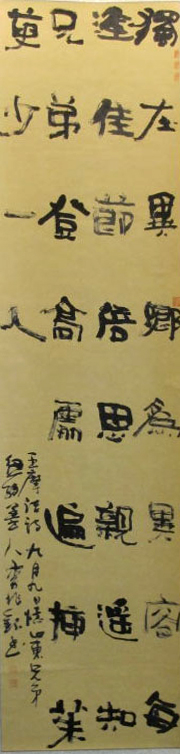 獨在異鄉為異客每
逢佳節倍思親遙知
兄弟登高處遍插茱
萸少一人
王摩詰詩九月九日憶山東兄弟